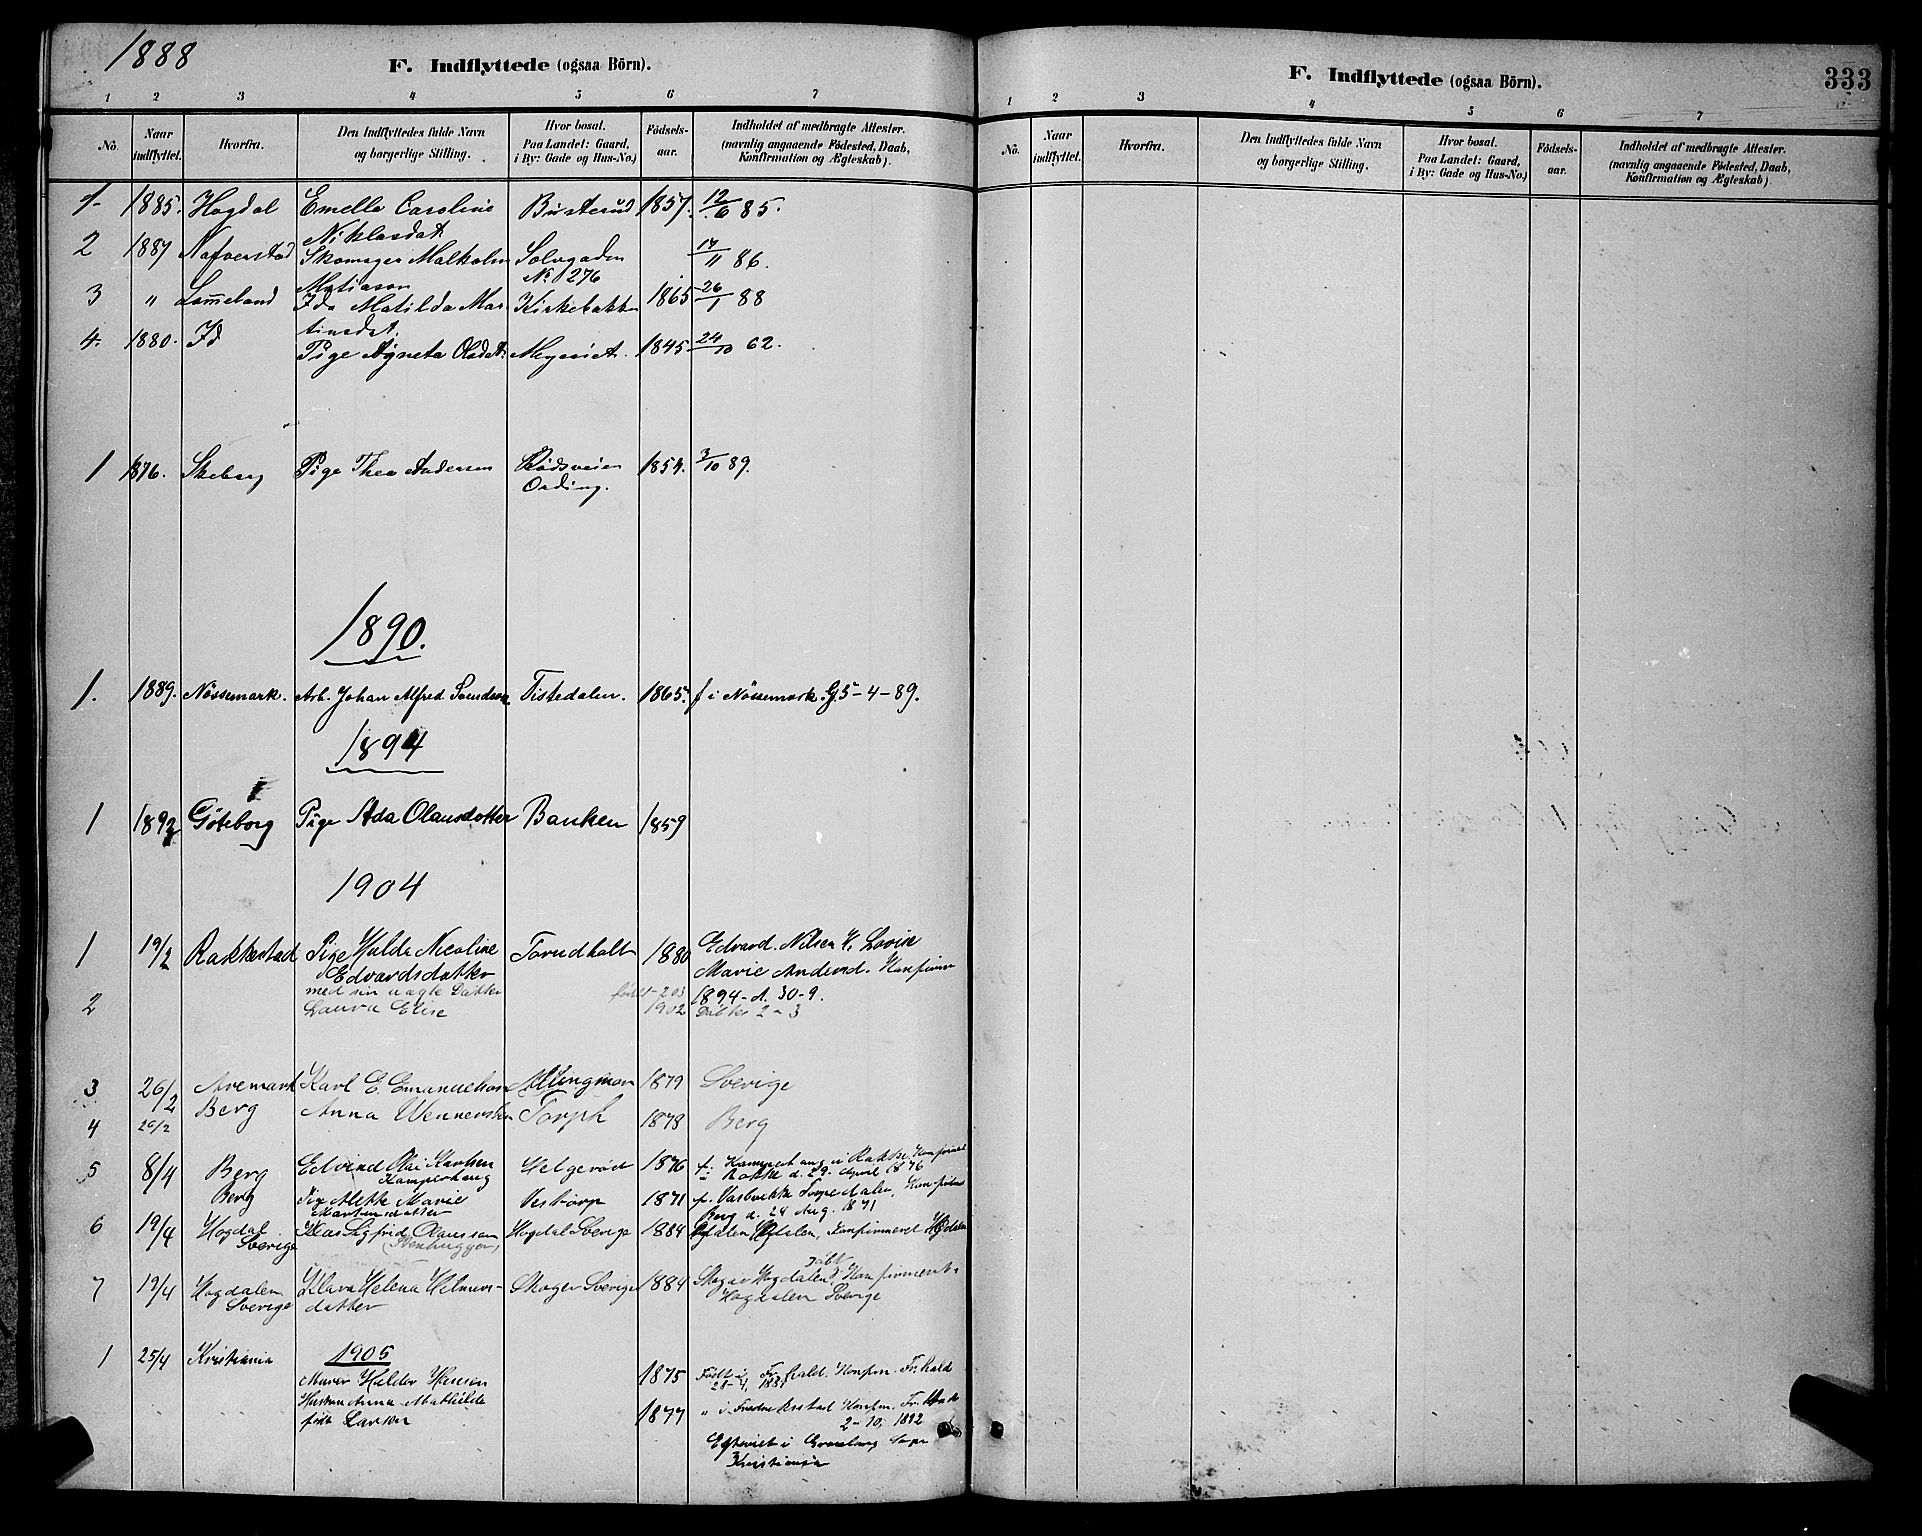 1888
F. Indflyttede (ogsaa Börn).
1 2 3 4 5 6 7
No. Naar indflyttet. Hvorfra. Den Indflyttedes fulde Navn og borgerlige Stilling. Hvor bosat. Paa Landet: Gaard, i By: Gade og Hus-No.) Fódsels-aar. Indholdet af medbragte Attester. (navnlig angaaende Födested, Daab, Konfirmation og Ægteskab).
1- 1885. Hogdal Emella Caroline Busterud 1857. 12/6 85.
Niklasdat.
2 1887 Nafverstad Skomager Malkolm Sølvgaden 14/11 86.
Matiason No. 276
3 " Lommeland Ida Matilda Mar- Kirkebakken 1865 26/1 88
tinsdat.
4. 1880. Id Pige Agneta Olsdat. Meyeriet. 1845 24/10 62.
1 1876. Skeberg Pige Thea Andersen Rødsveien 1854. 3/10 89.
Ording.
1890.
1. 1889. Nössemark. Arb. Johan Alfred Svendsen. Tistedalen. 1865. f i Nössemark. G. 5-4-89.
1894
1 1892 Göteborg Pige Ada Olausdotter Banken 1859
1904
1 19/2 Rakkestad Pige Hulda Nicoline Torudholt 1880 Edvard Nilsen K. Lovise
Edvardsdatter Marie Andersd. Konfirm
med sin uægte Datter født 20/3 1894 d. 30-9.
2 Laura Elise 1902 Døbt 2-3
3 26/2 Aremark Karl E. Emanuelson 1879 Sverige
4 26/2 Berg Anna Wennersten Torph 1878 Berg
5 8/4 Berg Edvind Olai Karlsen Helgerød 1876
Kamperhaug Rokke d. 29. April 1876
Berg Pige Alette Marie Vestorp 1871
Martinsdatter Berg d. 24 Aug. 1871
6 19/4 Hogdal Klas Sigfrid Olaussom Hogdal Sverige 1884 Konfirmeret Hogdalen
Sverige (Stenhugger)
7 19/4 Hogdalen Klara Helena Helmers- Skoger Sverige 1884 Skogar Hogdalen Døbt Konfirmeret i
Sverige datter Hogdalen Sverige
1905
1 25/4 Kristiania
Murer Halder Hansen 1875 Født i Fr. hald. Konfirm. Fr. hald
Hustru Anna Mathilde 1877 " i Fredrikstad Konfirm. Fr.
født Larsen 2-10, 1892
Egteviet i Grønland Sogn
Kristiania
F. Indflyttede (ogsaa Börn). 333
1 2 3 4 5 6 7
No. Naar indflyttet. Hvorfra. Den Indflyttedes fulde Navn og borgerlige Stilling. Hvor bosat. Paa Landet: Gaard, i By: Gade og Hus-No.) Födsels-aar. Indholdet af medbragte Attester. (navnlig angaaende Födested, Daab, Konfirmation og Ægteskab).